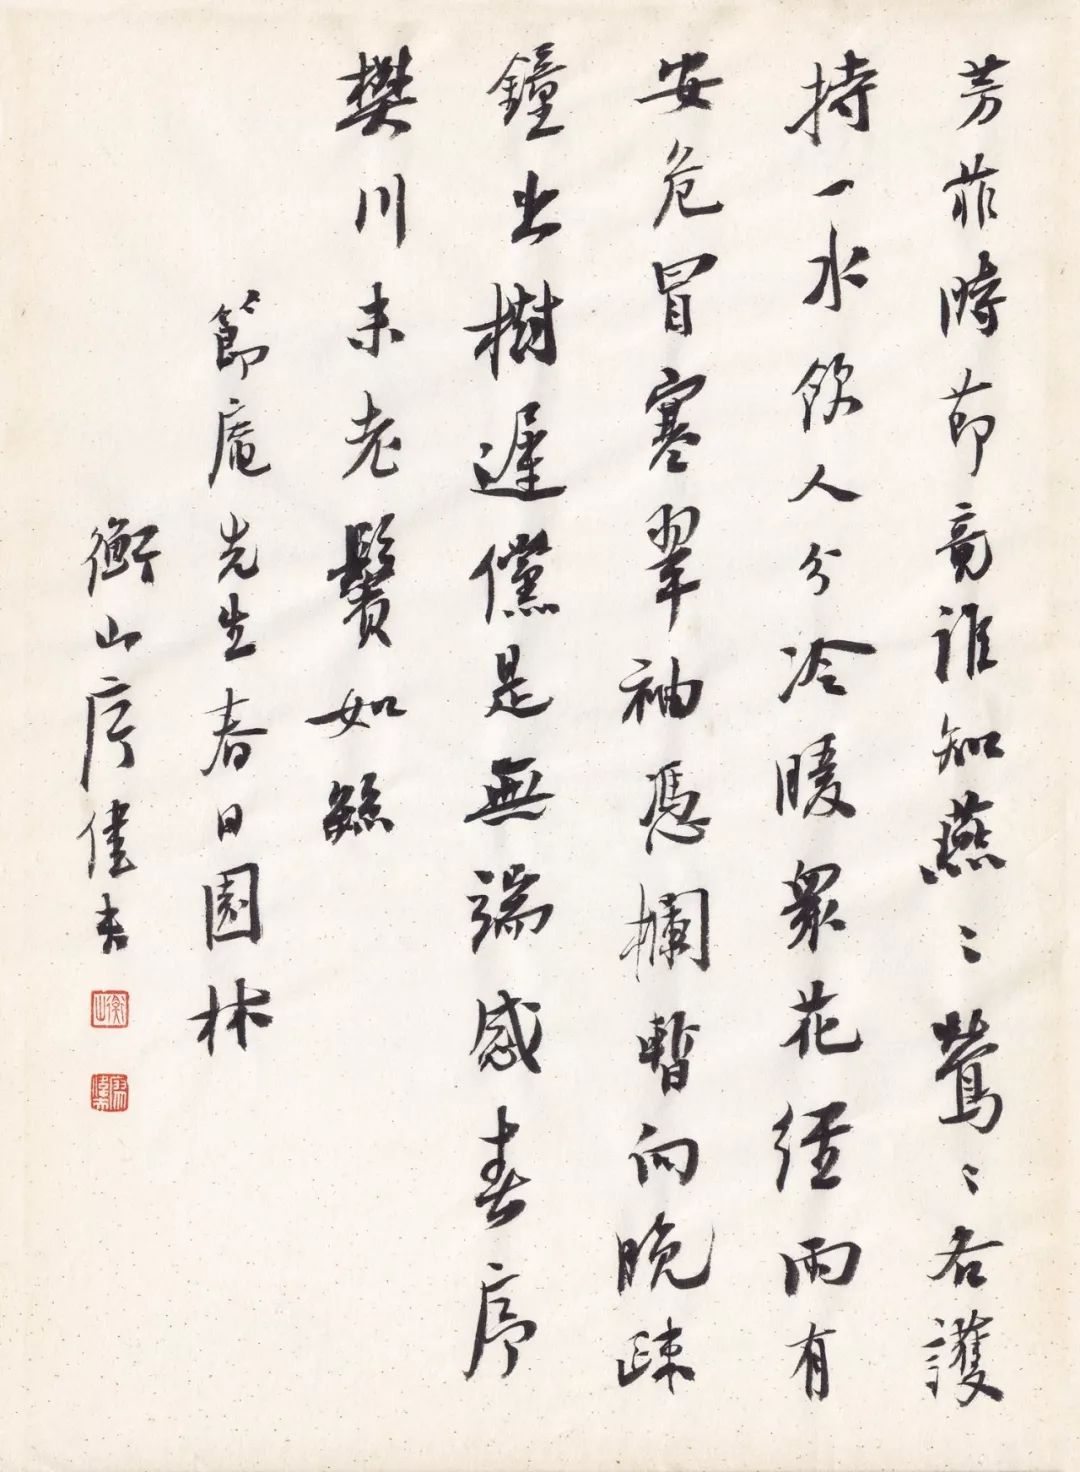 芳菲時節竟誰知燕〻鶯〻各護
持一水飲人分冷暖衆花經雨有
安危冒寒翠袖憑欄暫向晚疎
鐘出樹遲儻是無端感春序
樊川未老鬢如絲
節庵先生春日園林
衡山
衡山